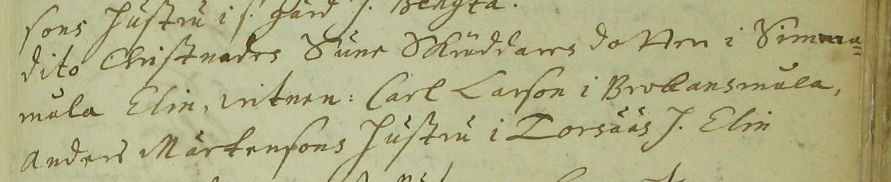 sons Hustru i s. gård H. Bengta.
dito Christnades Sune Skräddares dotter i Simma=
mula Elin, vitnen: Carl Larson i Brokansmåla,
Anders Mårtensons Hustru i Torsåås H. Elin